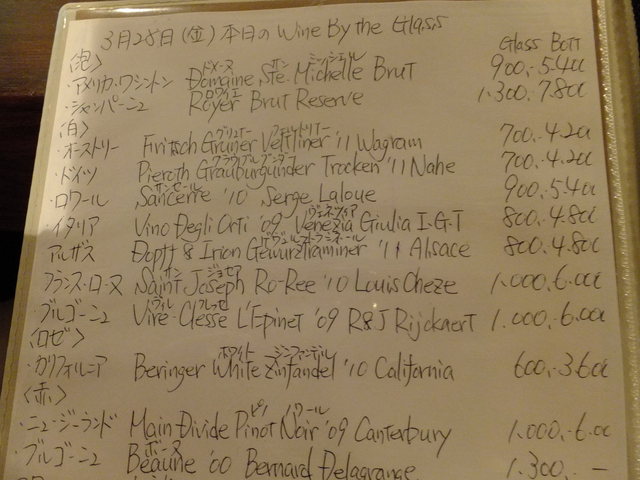 3月28日(金)本日の Wine By the Glass
Glass Bott
〈泡〉
・アメリカ・ワシントン Domaine Ste. Michelle Brut 900.-5.4
ドメーヌ サン ミッシェル
・シャンパーニュ Royer Brut Reserve 1.300.7.8
ロワイエ
〈白〉
・オーストリー Fritsch Gruner Veltliner '11 Wagram 700.-4.2
グリュナー フェルトリナー
・ドイツ Pieroth Grauburgunder Trocken '11 Nahe 700.-4.2
グラウブルグンダー
・ロワール Sancerre '10 Serge Laloue 900.-5.4
サンセール
イタリア Vino Degli Orti '09 Venezia Giulia I.G.T 800.-4.8
ヴェネツィア
アルザス Dopff & Irion Gewurztraminer '11 Alsace 800.-4.8
フランス・ローヌ Saint Joseph Ro-Ree '10 Louis Cheze 1.000.-6.0
サン ジョセフ
ブルゴーニュ Vire-Clesse L'Epinet '09 R&J Rijckaert 1.000.-6.0
ヴィレ クレッセ
〈ロゼ〉
・カリフォルニア Beringer White Zinfandel '10 California 600.-3.6
ホワイト ジンファンデル
〈赤〉
・ニュージーランド Main Divide Pinot Noir '09 Canterbury 1.000.-6.0
ピノ ノワール
・ブルゴーニュ Beaune '00 Bernard Delagrange 1.300.—
ボーヌ